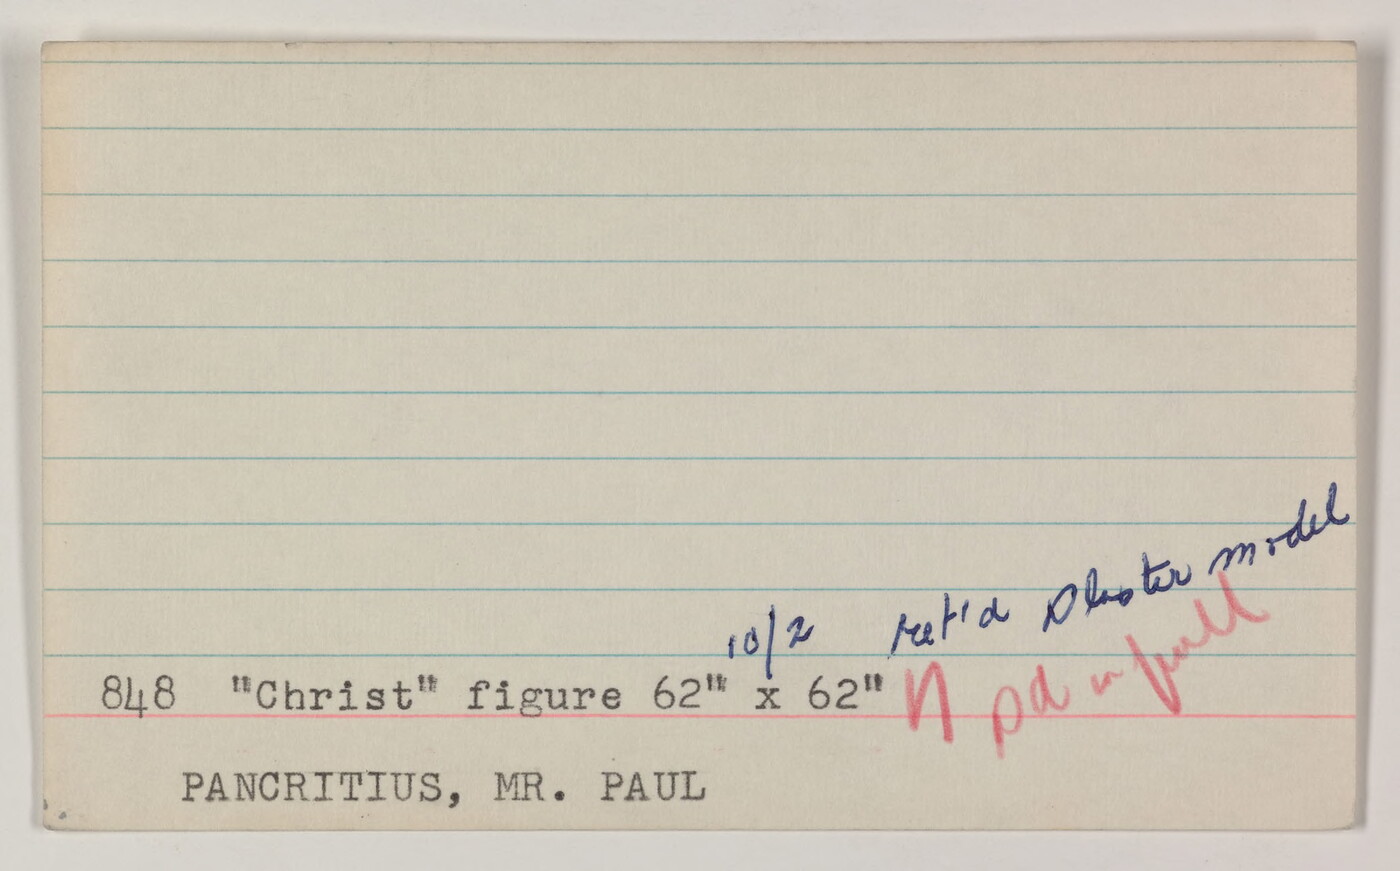 10/2 ret'd plaster model
848 "Christ" figure 62" x 62" pd in full
PANCRITIUS, MR. PAUL